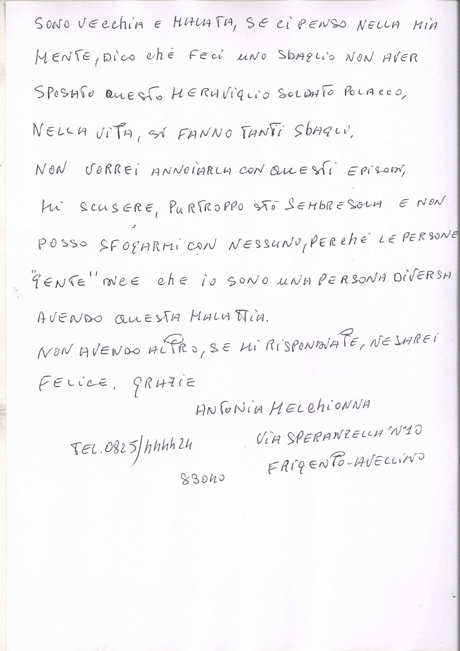 SONO VECCHIA E MALATA, SE CI PENSO NELLA MIA
MENTE, DICO CHE FECI UNO SBAGLIO NON AVER
SPOSATO QUESTO MERAVIGLIO SOLDATO POLACCO,
NELLA VITA, SI FANNO TANTI SBAGLI,
NON VORREI ANNOIARLA CON QUESTI EPISODI,
MI SCUSERE, PURTROPPO STÒ SEMBRESOLA E NON
POSSO SFOGARMI CON NESSUNO, PERCHÉ LE PERSONE
"GENTE" CHE IO SONO UNA PERSONA DIVERSA
AVENDO QUESTA MALATTIA.
NON AVENDO ALTRO, SE MI RISPONDATE, NE SAREI
FELICE. GRAZIE
ANTONIA MELCHIONNA
TEL. 0825/444424
VIA SPERANZELLA N°10
FRIGENTO-AVELLINO
83040